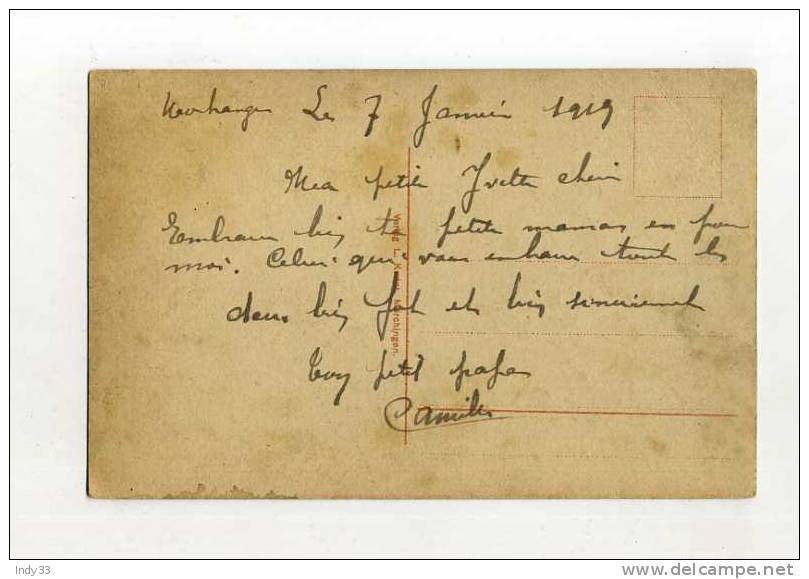 Morhange Le 7 Janvier 1919
Ma petite Yvette chérie
Embrasse bien ta petite maman en pour
moi. Celui qui vous embrasse toute les
deux bien fort et bien sincèrement
Ton petit papa
Camille
Verlag L. Mörchingen.
Indy33
delcampe.net